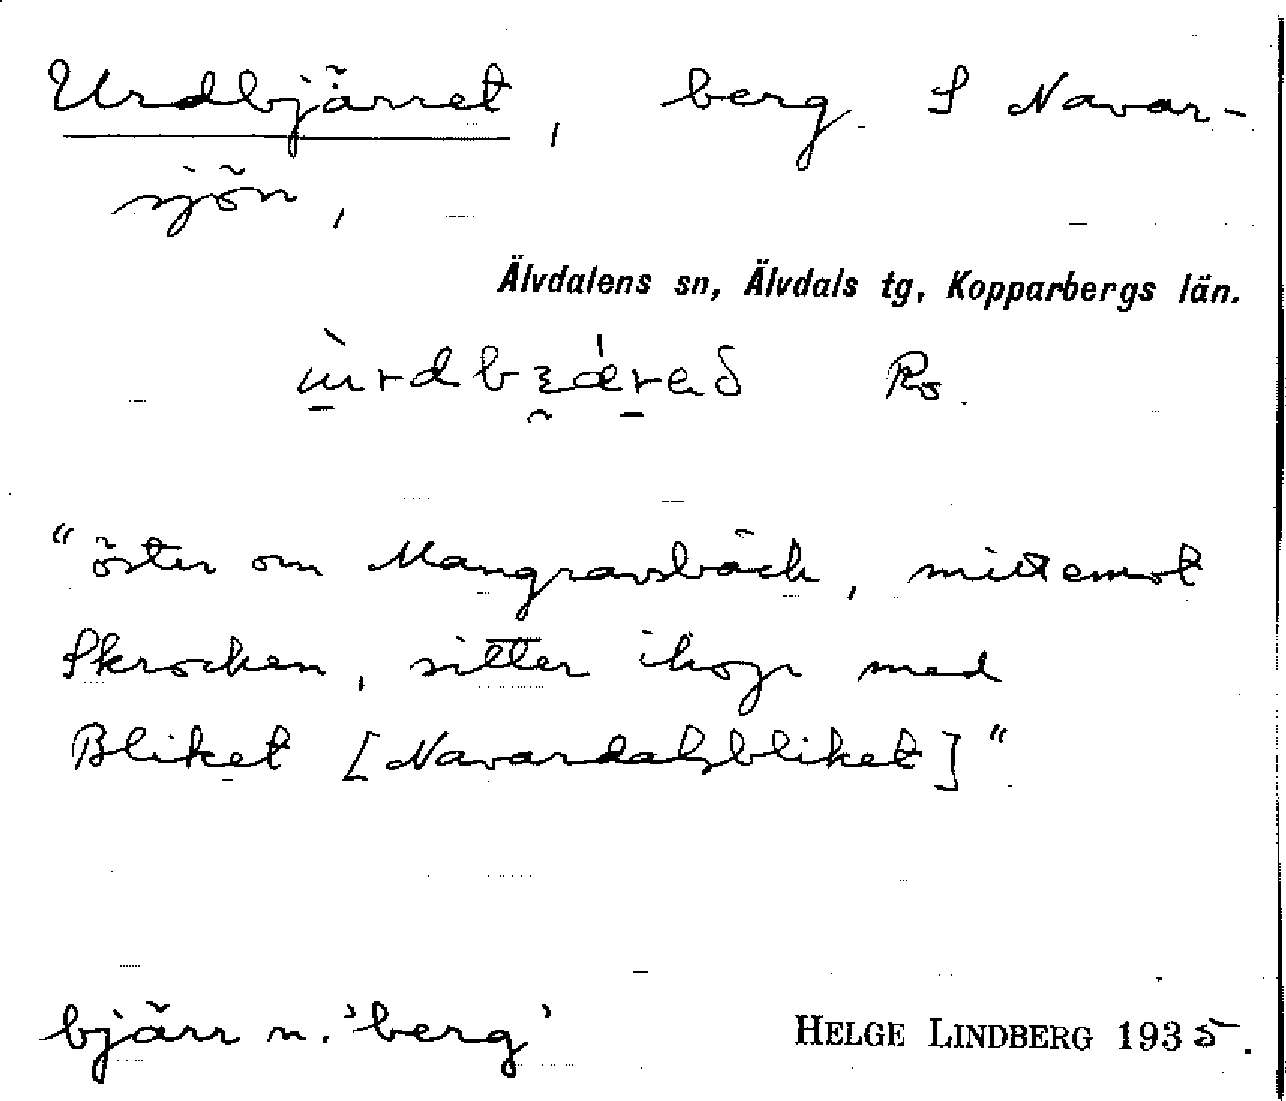 Urdbjärret, berg S Navar-
sjön,
Älvdalens sn, Älvdals tg, Kopparbergs län.
Ro.
"öster om Mangravsbäck, mittemot
Skrocken, sitter ihop med
Bliket [Navardalsbliket]"
bjärr n. 'berg'
HELGE LINDBERG 1935.